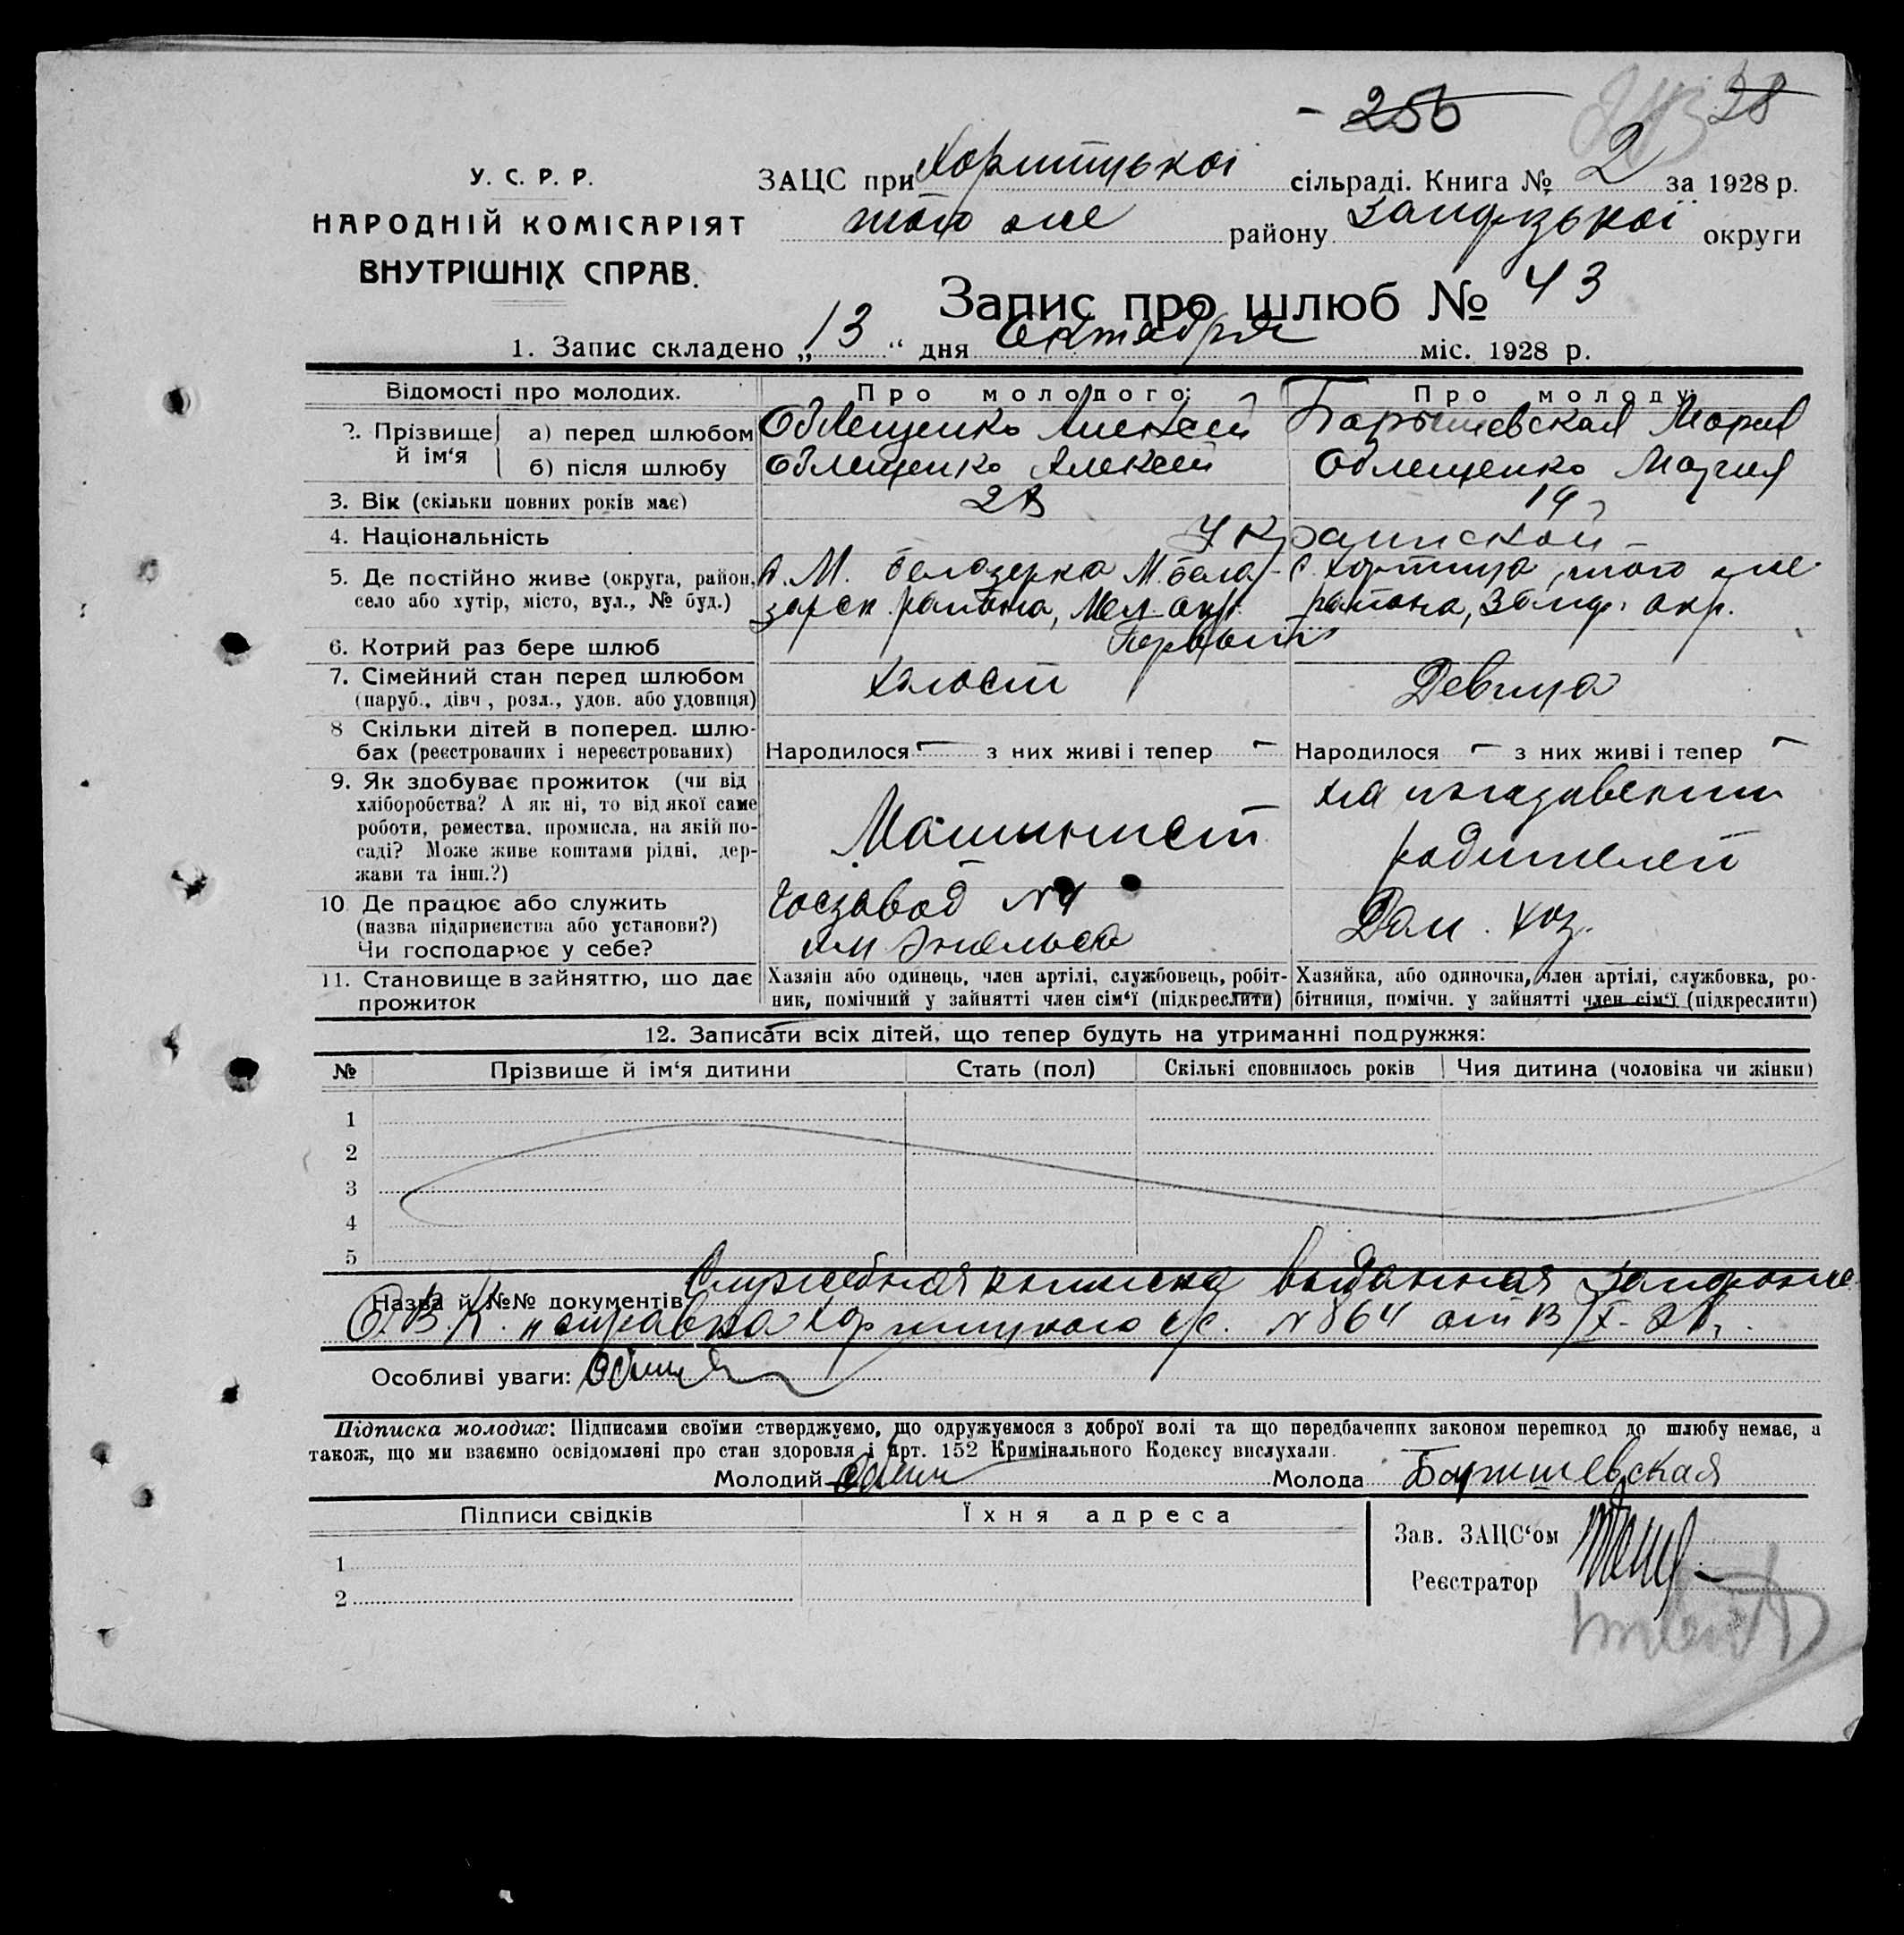 - 256 28
У. С. Р. Р.
НАРОДНІЙ КОМІСАРІЯТ
ВНУТРІШНІХ СПРАВ.
ЗАЦС при Хортицькоі сільраді. Книга № 2 за 1928 р.
того же району Запорізької округи
Запис про шлюб № 43
1. Запис складено „13“ дня Октября міс. 1928 р.
Відомості про молодих. Про молодого: Про молоду:
2. Прізвище й ім‘я
а) перед шлюбом Облещенко Алексей Барышевская Мария
б) після шлюбу Облещенко Алексей Облещенко Мария
3. Вік (скільки повних років має) 19
4. Національність Украинской
5. Де постійно живе (округа, район, село або хутір, місто, вул., № буд.)
с. М. Белозерка М. Бело-
зерск. района, Мел. окр.
с. Хортица, того же
района, Запор. окр.
6. Котрий раз бере шлюб Первый
7. Сімейний стан перед шлюбом Холост Девица
(паруб., дівч., розл., удов. або удовиця)
8 Скільки дітей в поперед. шлю-
бах (реєстрованих і нереєстрованих) Народилося — з них живі і тепер — Народилося — з них живі і тепер —
9. Як здобуває прожиток (чи від
хліборобства? А як ні, то від якої саме
роботи, ремества, промисла, на якій по-
саді? Може живе коштами рідні, дер-
жави та інш.?)
Машинист
на иждивении
родителей
10 Де працює або служить
(назва підприєнства або установи?)
Чи господарює у себе?
Госзавод №4
им Энгельса
Дом. хоз.
11. Становище в зайняттю, що дає
прожиток
Хазяїн або одинець, член артілі, службовець, робіт-
ник, помічний у зайнятті член сім‘ї (підкреслити)
Хазяйка, або одиночка, член артілі, службовка, ро-
бітниця, помічн. у зайнятті член сім‘ї (підкреслити)
12. Записати всіх дітей, що тепер будуть на утриманні подружжя:
№ Прізвище й ім‘я дитини Стать (пол) Скількі сповнилось років Чия дитина (чоловіка чи жінки)
1
2
3
4
5
Назва й №№ документів Служебная книжка выданная
О.В.К. и справка Хортицкого с/с. № 864 от 13/X-
Особливі уваги:
Підписка молодих: Підписами своїми стверджуємо, що одружуємося з доброї волі та що передбачених законом перешкод до шлюбу немає, а
також, що ми взаємно освідомлені про стан здоровля і Арт. 152 Кримінального Кодексу вислухали.
Молодий Молода Барышевская
Підписи свідків Їхня адреса
1
2
Зав. ЗАЦС‘ом
Реєстратор